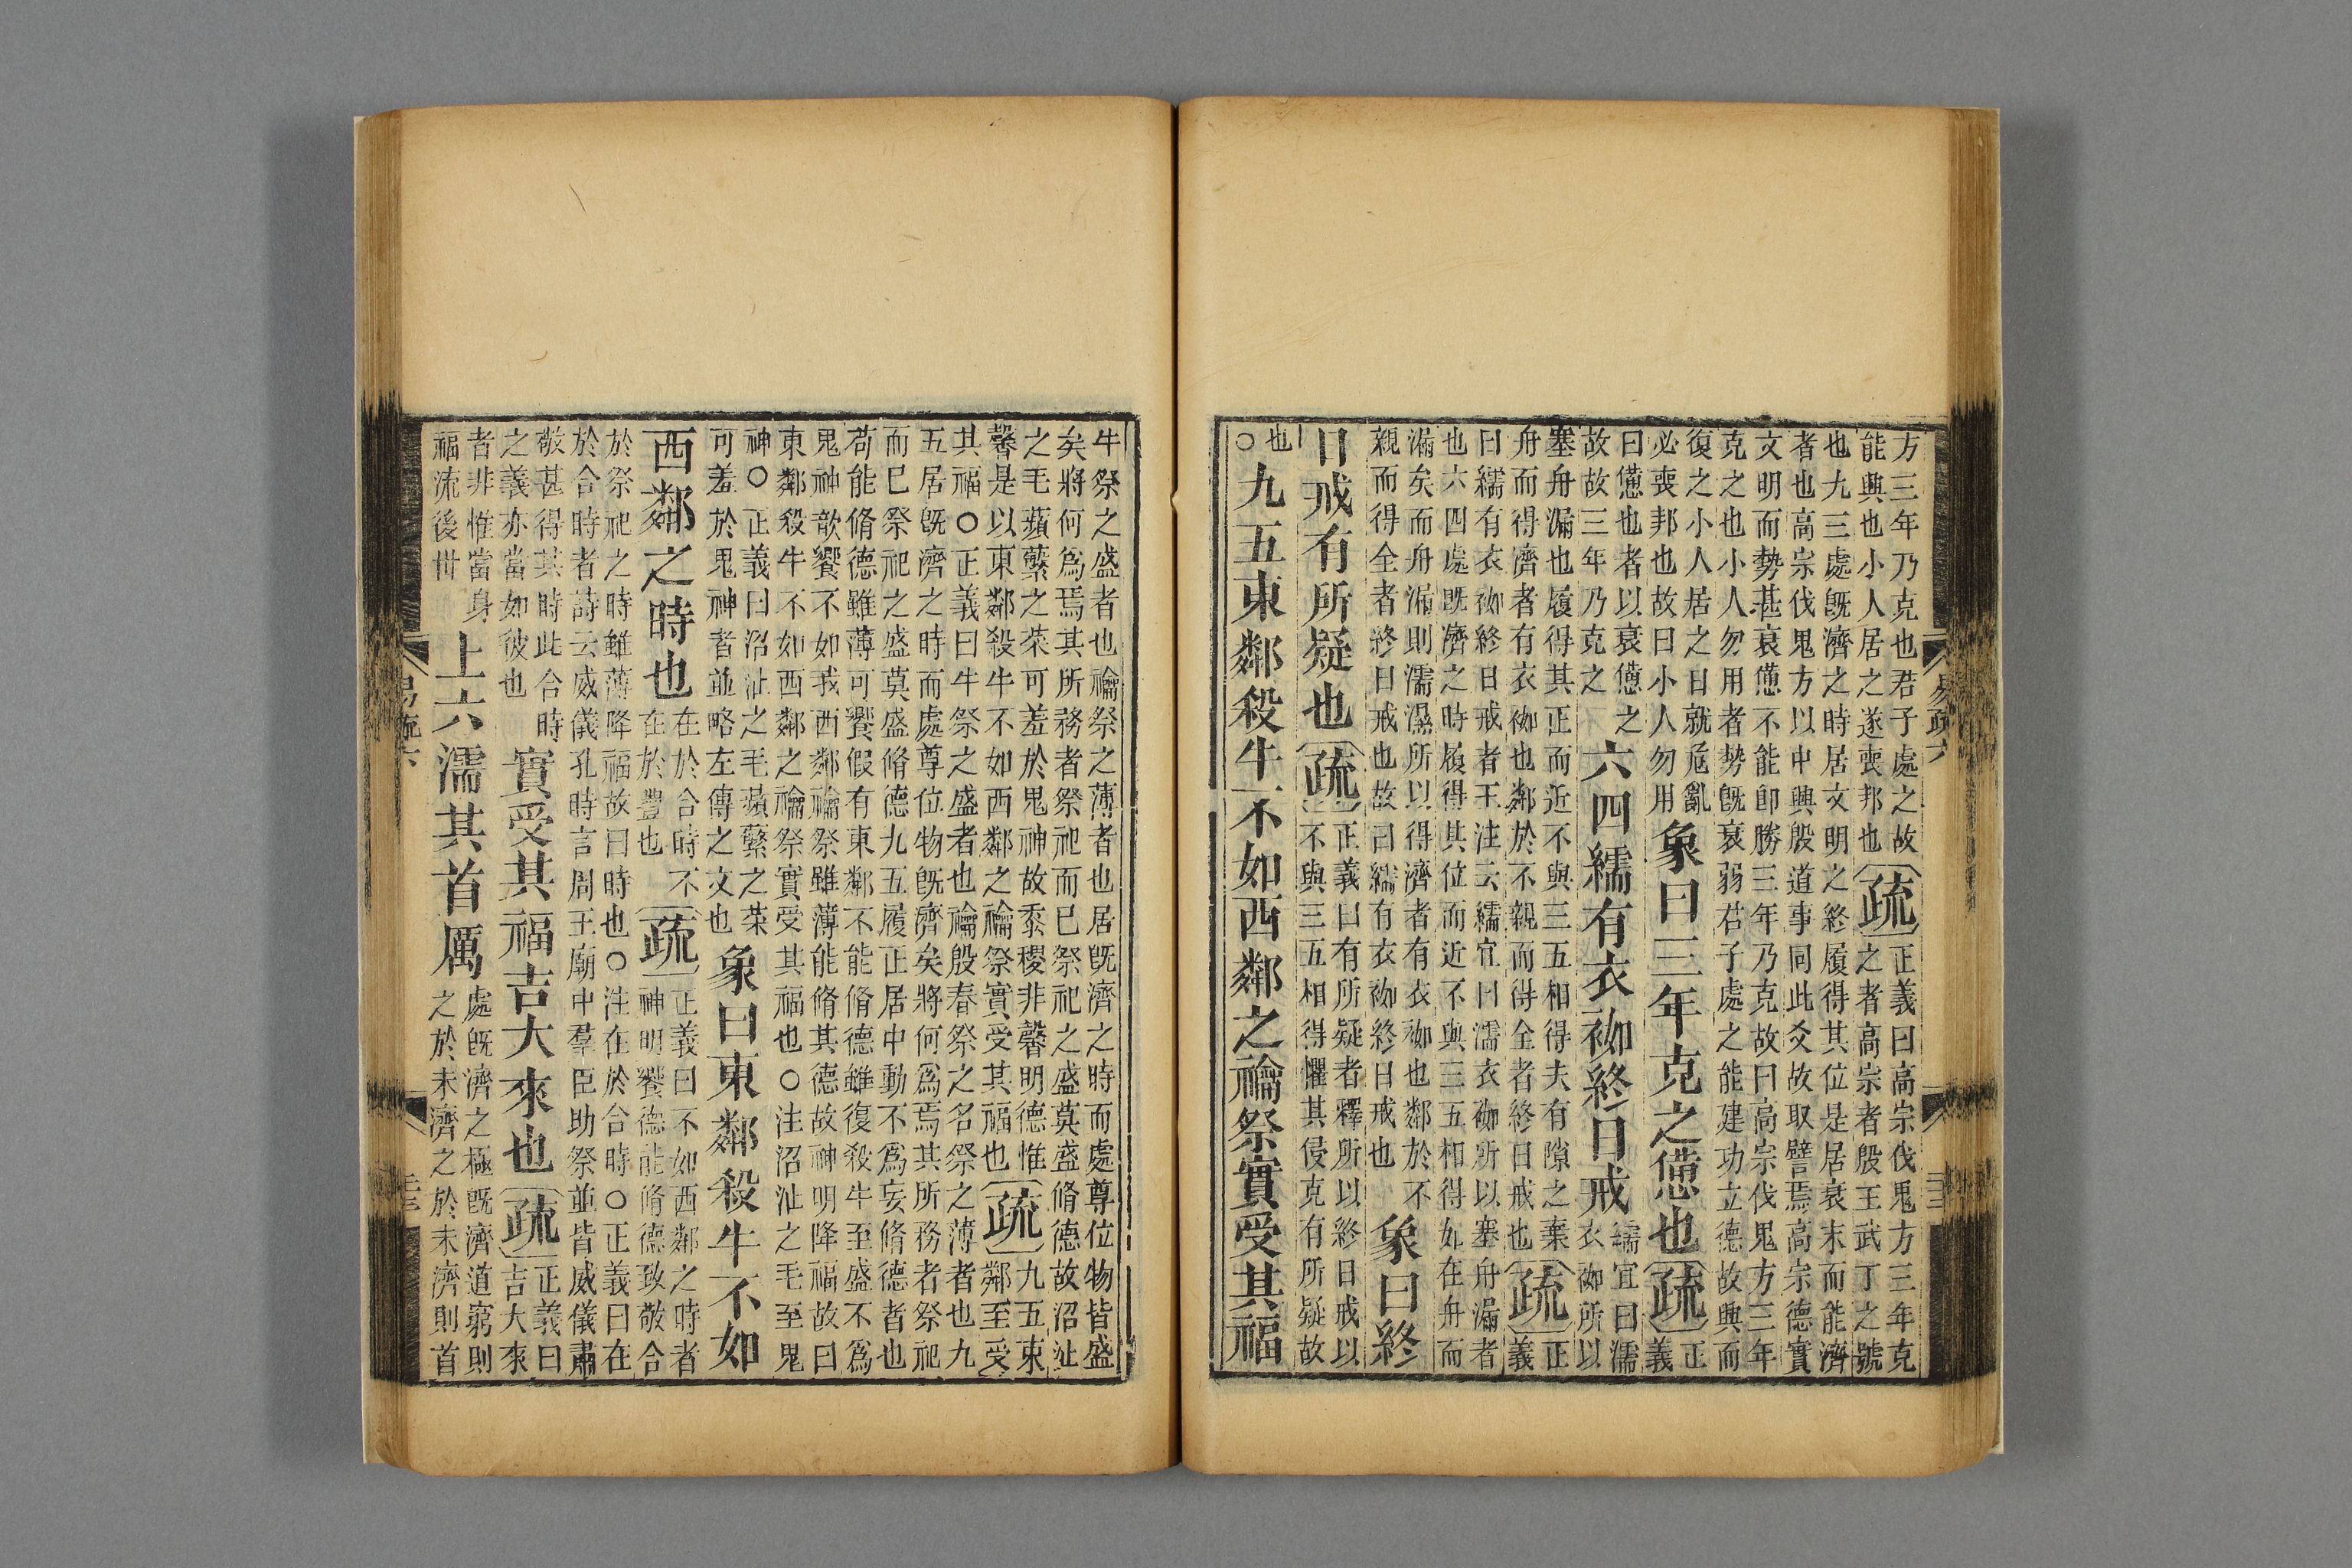 方三年乃克也君子處之故
能興也小人居之遂喪邦也
疏
正義曰高宗伐鬼方三年克
之者高宗者殷王武丁之號
也九三處旣濟之時居文明之終履得其位是居衰末而能濟
者也高宗伐鬼方以中興殷道事同此爻故取譬焉高宗德實
文明而勢甚衰憊不能卽勝三年乃克故曰高宗伐鬼方三年
克之也小人勿用者勢旣衰弱君子處之能建功立德故興而
復之小人居之日就危亂
必喪邦也故曰小人勿用
象曰三年克之憊也
疏
正
義
曰憊也者以衰憊之
故故三年乃克之
六四繻有衣袽終日戒
繻宜曰濡
衣袽所以
塞舟漏也履得其正而近不與三五相得夫有隙之棄
舟而得濟者有衣袽也鄰於不親而得全者終日戒也
疏
正
義
曰繻有衣袽終日戒者王注云繻宜曰濡衣袽所以塞舟漏者
也六四處旣濟之時履得其位而近不與三五相得如在舟而
漏矣而舟漏則濡濕所以得濟者有衣袽也鄰於不
親而得全者終日戒也故曰繻有衣袽終日戒也
象曰終
日戒有所疑也
疏
正義曰有所疑者釋所以終日戒以
不與三五相得懼其侵克有所疑故
也
○
九五東鄰殺牛不如西鄰之禴祭實受其福
易疏六
牛祭之盛者也禴祭之薄者也居旣濟之時而處尊位物皆盛
矣將何爲焉其所務者祭祀而已祭祀之盛莫盛脩德故沼沚
之毛蘋蘩之菜可羞於鬼神故黍稷非馨明德惟
馨是以東鄰殺牛不如西鄰之禴祭實受其福也
疏
九五東
鄰至受
其福○正義曰牛祭之盛者也禴殷春祭之名祭之薄者也九
五居旣濟之時而處尊位物旣濟矣將何爲焉其所務者祭祀
而已祭祀之盛莫盛脩德九五履正居中動不爲妄脩德者也
苟能脩德雖薄可饗假有東鄰不能脩德雖復殺牛至盛不爲
鬼神歆饗不如我西鄰禴祭雖薄能脩其德故神明降福故曰
東鄰殺牛不如西鄰之禴祭實受其福也○注沼沚之毛至鬼
神○正義曰沼沚之毛蘋蘩之菜
可羞於鬼神者並略左傳之文也
象曰東鄰殺牛不如
西鄰之時也
在於合時不
在於豐也
疏
正義曰不如西鄰之時者
神明饗德能脩德致敬合
於祭祀之時雖薄降福故曰時也○注在於合時○正義曰在
於合時者詩云威儀孔時言周王廟中羣臣助祭並皆威儀肅
敬甚得其時此合時
之義亦當如彼也
實受其福吉大來也
疏
正義曰
吉大來
者非惟當身
福流後世
上六濡其首厲
處旣濟之極旣濟道窮則
之於未濟之於未濟則首
易疏六